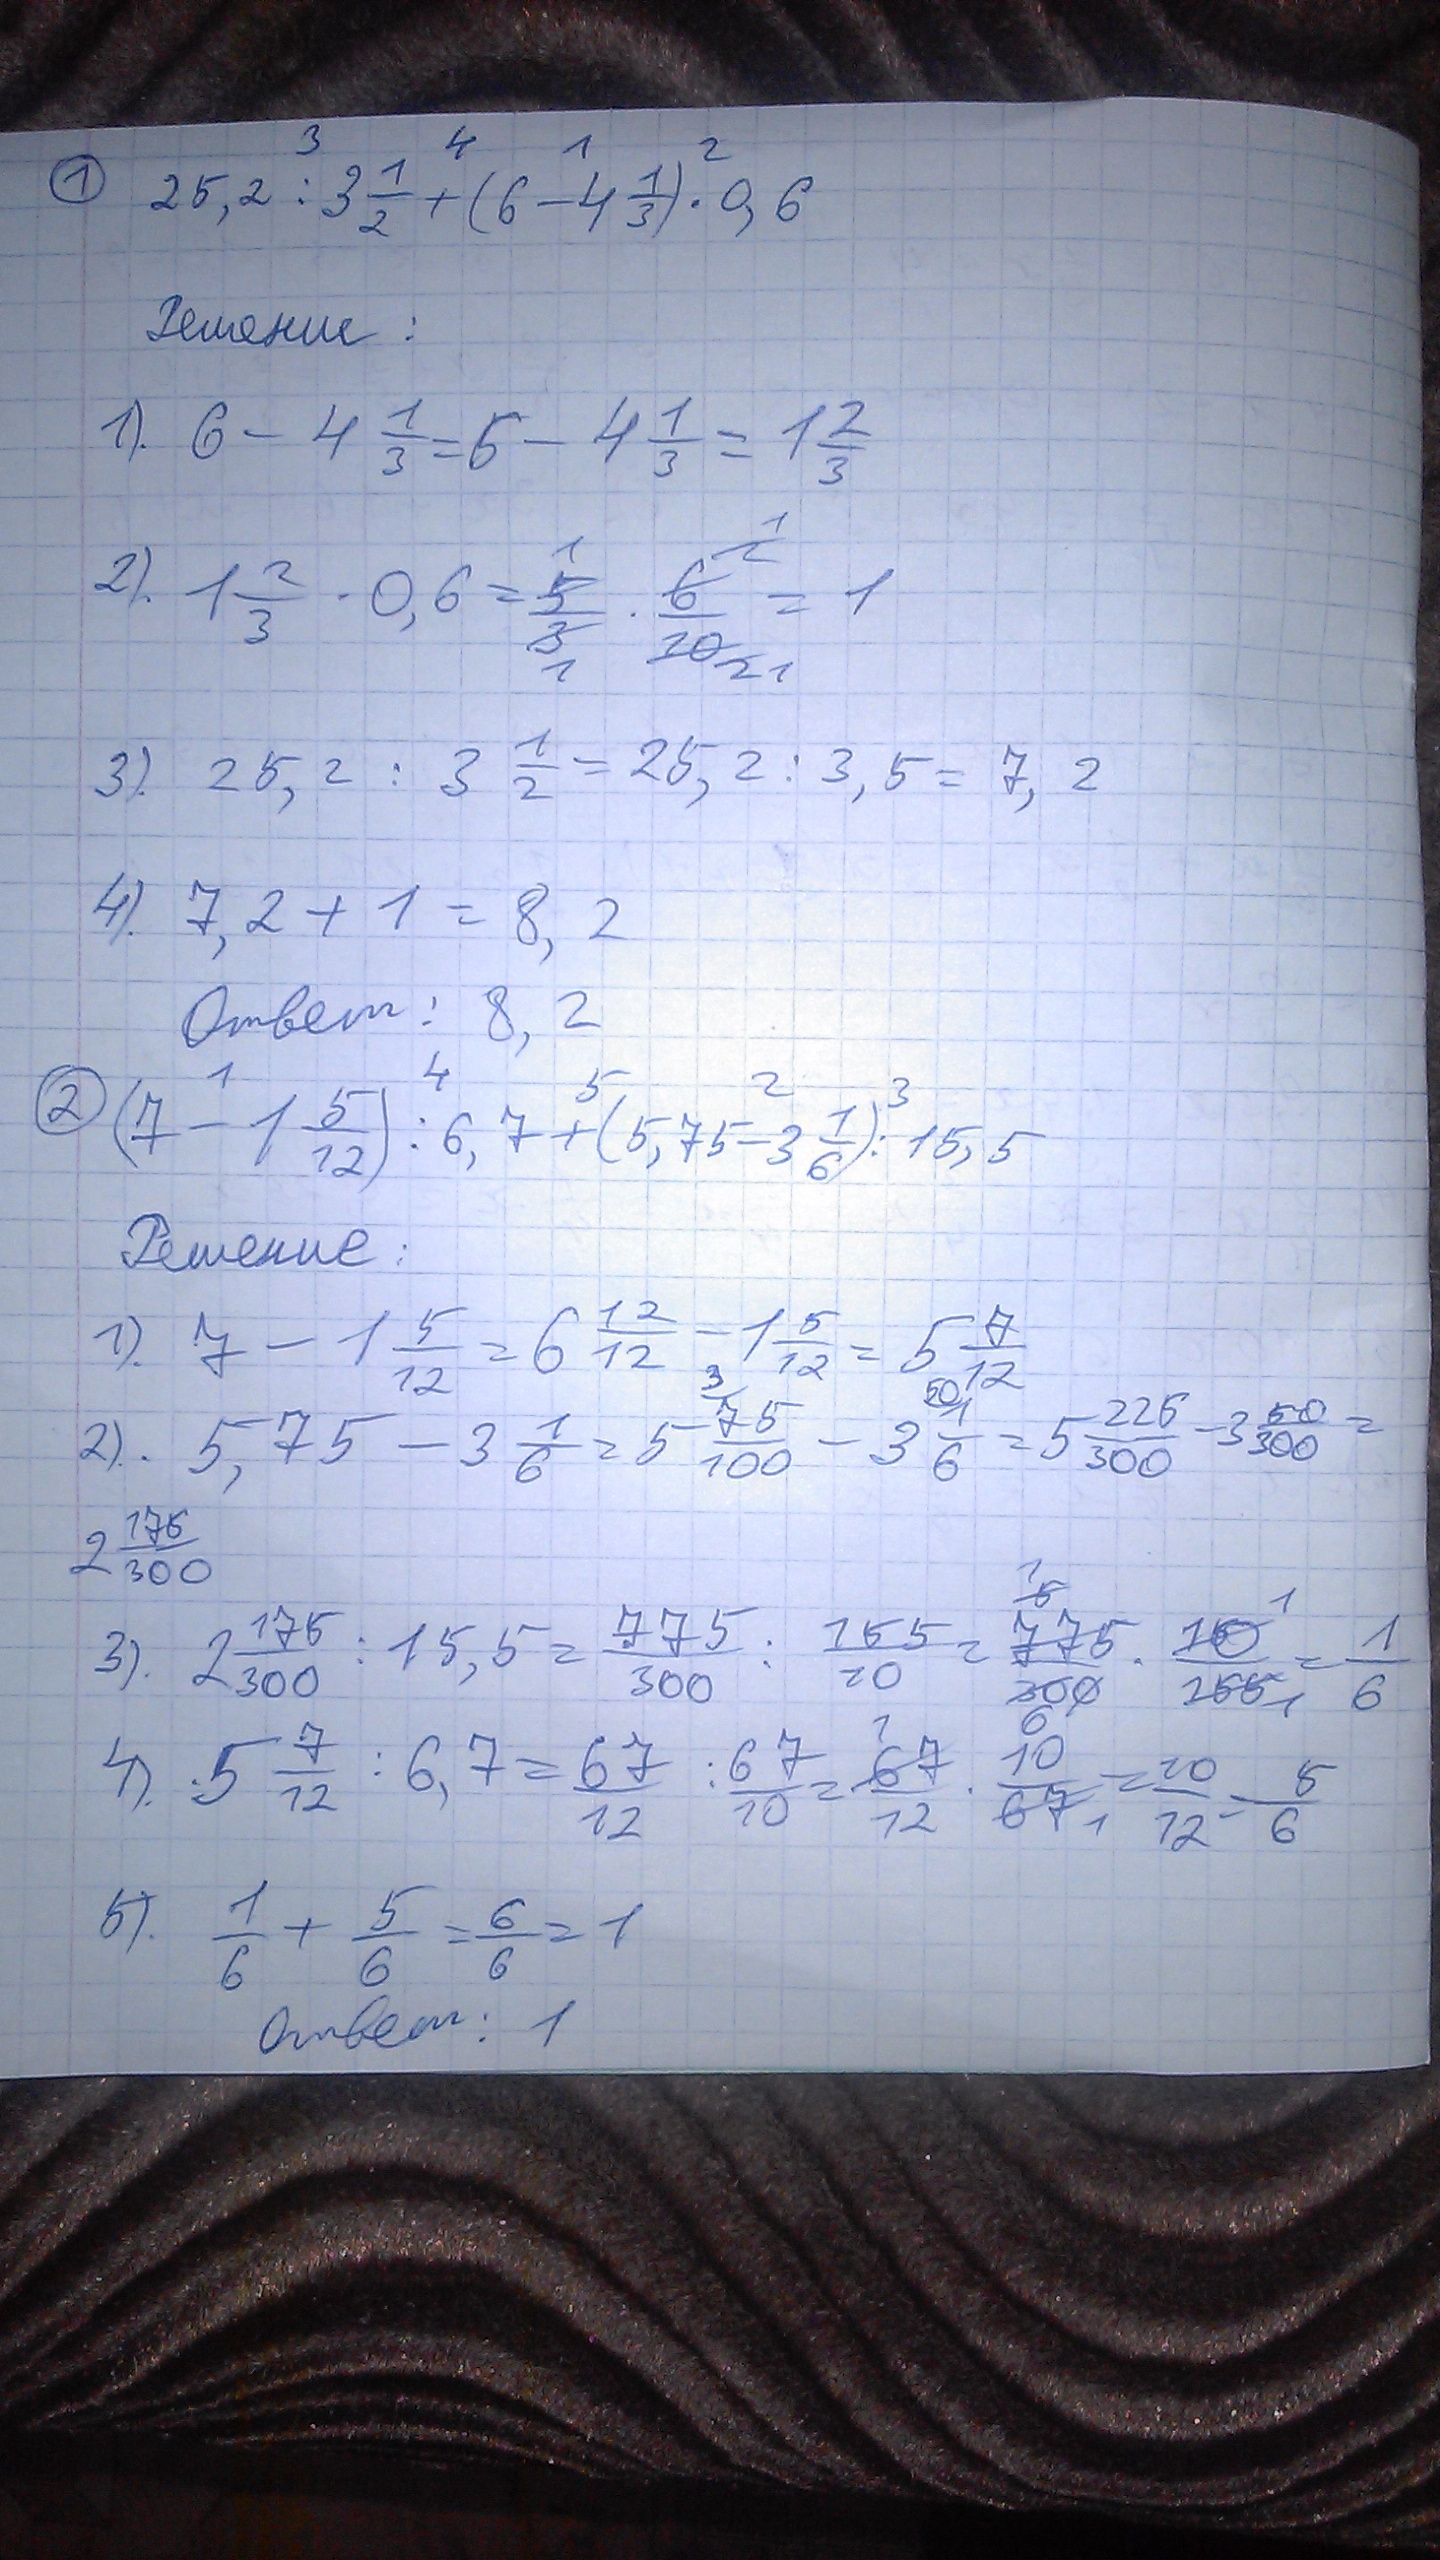 ① 25,2 : 3 1/2 + (6 - 4 1/3) · 0,6
Решение:
1). 6 - 4 1/3 = 5 - 4 1/3 = 1 2/3
2). 1 2/3 · 0,6 = 5/3 · 6/10 = 1
3). 25,2 : 3 1/2 = 25,2 : 3,5 = 7,2
4). 7,2 + 1 = 8,2
Ответ: 8,2
② (7 - 1 5/12) : 6,7 + (5,75 - 3 1/6) : 15,5
Решение:
1). 7 - 1 5/12 = 6 12/12 - 1 5/12 = 5 7/12
2). 5,75 - 3 1/6 = 5 75/100 - 3 1/6 = 5 225/300 - 3 50/300 =
2 175/300
3). 2 175/300 : 15,5 = 775/300 : 155/10 = 775/300 · 10/155 = 1/6
4). 5 7/12 : 6,7 = 67/12 : 67/10 = 67/12 · 10/67 = 10/12 = 5/6
5). 1/6 + 5/6 = 6/6 = 1
Ответ: 1